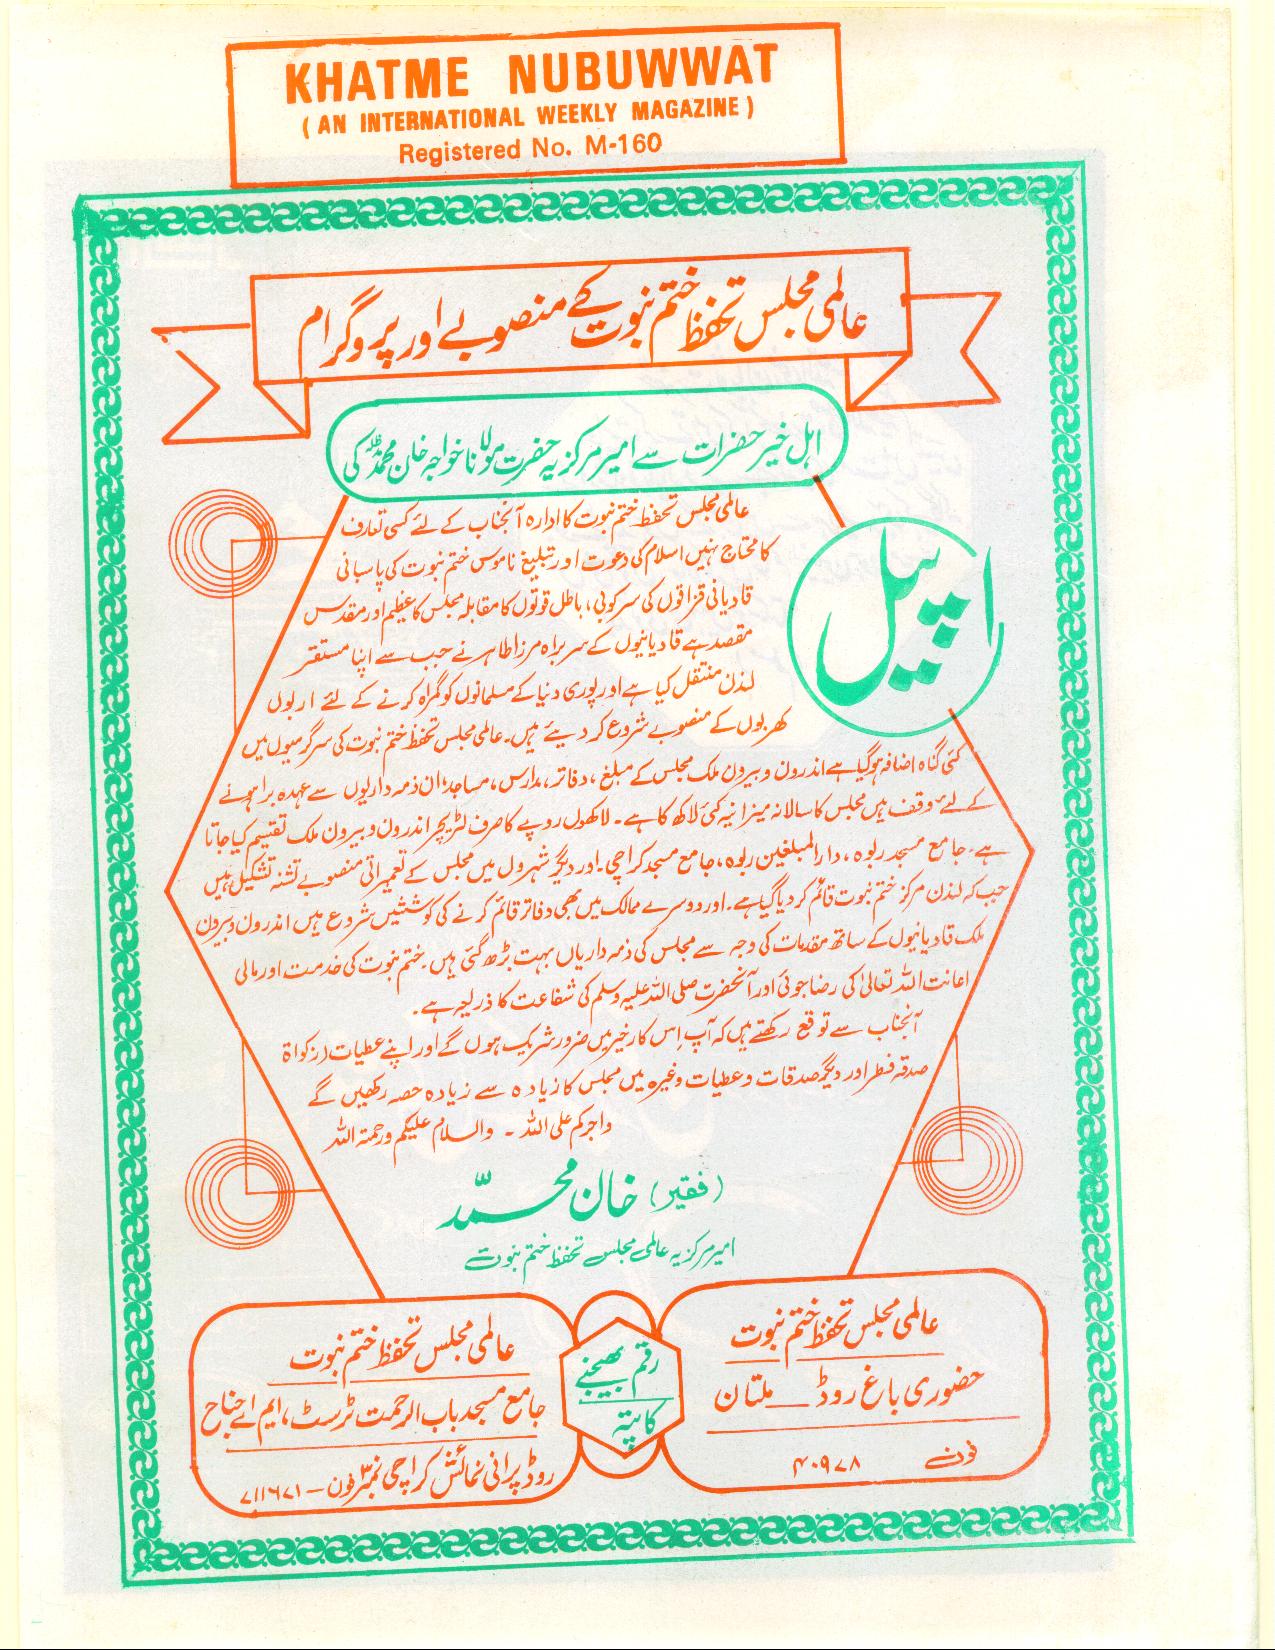 KHATME NUBUWWAT
( AN INTERNATIONAL WEEKLY MAGAZINE )
Registered No. M-160
عالمی مجلس تحفظ ختم نبوت کے منصوبے اور پروگرام
اہل خیر حضرات سے امیر مرکزیہ حضرت مولانا خواجہ خان محمد مدظلہ کی
اپیل
عالمی مجلس تحفظ ختم نبوت کا ادارہ آنجناب کے لئے کسی تعارف
کا محتاج نہیں اسلام کی دعوت اور تبلیغ ناموس ختم نبوت کی پاسبانی
قادیانی قزاقوں کی سرکوبی، باطل قوتوں کا مقابلہ مجلس کا عظیم اور مقدس
مقصد ہے قادیانیوں کے سربراہ مرزا طاہر نے جب سے اپنا مستقر
لندن منتقل کیا ہے اور پوری دنیا کے مسلمانوں کو گمراہ کرنے کے لئے اربوں
کھربوں کے منصوبے شروع کر دیئے ہیں۔ عالمی مجلس تحفظ ختم نبوت کی سرگرمیوں میں
کئی گناہ اضافہ ہوگیا ہے اندرون و بیرون ملک مجلس کے مبلغ، دفاتر، مدارس، مساجد، ان ذمہ داریوں سے عہدہ برا ہونے
کے لئے وقف ہیں مجلس کا سالانہ میزانیہ کئی لاکھ کا ہے۔ لاکھوں روپے کا صرف لٹریچر اندرون و بیرون ملک تقسیم کیا جاتا
ہے۔ جامع مسجد ربوہ، دار المبلغین ربوہ، جامع مسجد کراچی۔ اور دیگر شہروں میں مجلس کے تعمیراتی منصوبے تشنہ تشکیل ہیں
جب کہ لندن مرکز ختم نبوت قائم کر دیا گیا ہے۔ اور دوسرے ممالک میں بھی دفاتر قائم کرنے کی کوششیں شروع ہیں اندرون و بیرون
ملک قادیانیوں کے ساتھ مقدمات کی وجہ سے مجلس کی ذمہ داریاں بہت بڑھ گئی ہیں۔ ختم نبوت کی خدمت اور مالی
اعانت اللہ تعالیٰ کی رضا جوئی اور آنحضرت صلی اللہ علیہ وسلم کی شفاعت کا ذریعہ ہے۔
آنجناب سے توقع رکھتے ہیں کہ آپ اس کار خیر میں ضرور شریک ہوں گے اور اپنے عطیات (زکواۃ
صدقہ فطر اور دیگر صدقات و عطیات وغیرہ میں مجلس کا زیادہ سے زیادہ حصہ رکھیں گے
واجرکم علی اللہ ۔ والسلام علیکم ورحمۃ اللہ
(فقیر) خان محمد
امیر مرکزیہ عالمی مجلس تحفظ ختم نبوت
رقم بھیجنے
کا پتہ
عالمی مجلس تحفظ ختم نبوت
حضوری باغ روڈ ۔ ملتان
فون ۴۰۹۷۸
عالمی مجلس تحفظ ختم نبوت
جامع مسجد باب الرحمت ٹرسٹ، ایم اے جناح
روڈ پرانی نمائش کراچی نمبر۳ فون – ۷۱۱۶۷۱